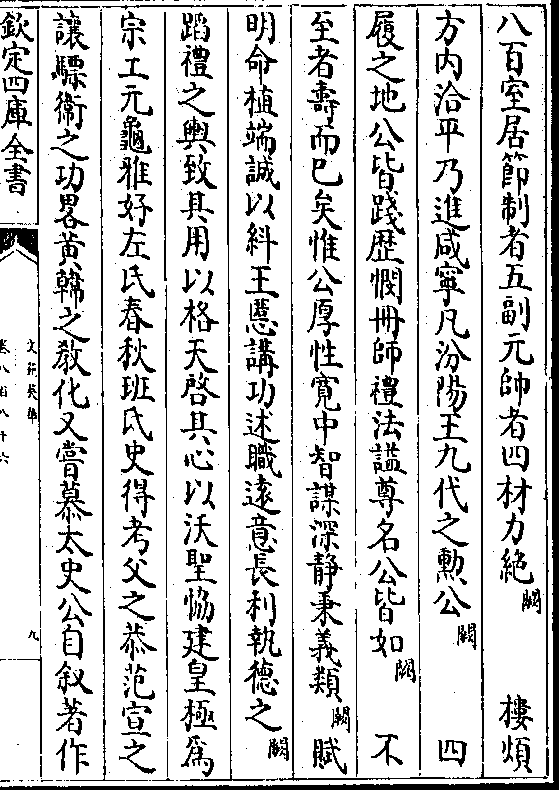 八百室居節制者五副元帥者四材力絶闕樓煩
方内洽平乃進咸寧凡汾陽王九代之勲公闕四
履之地公皆踐歴憫冊師禮法諡尊名公皆如闕不
至者壽而已矣惟公厚性寛中智謀深靜秉義類闕賦
明命植端誠以糾王慝講功述職遠意長利執德之闕
蹈禮之輿致其用以格天啓其心以沃聖恊建皇極爲
宗工元龜雅好左氏春秋班氏史得考父之恭范宣之
讓驃衞之功畧黄韓之敎化又嘗慕太史公自叙著作
欽定四庫全書
文苑英華
卷八百八十六
九